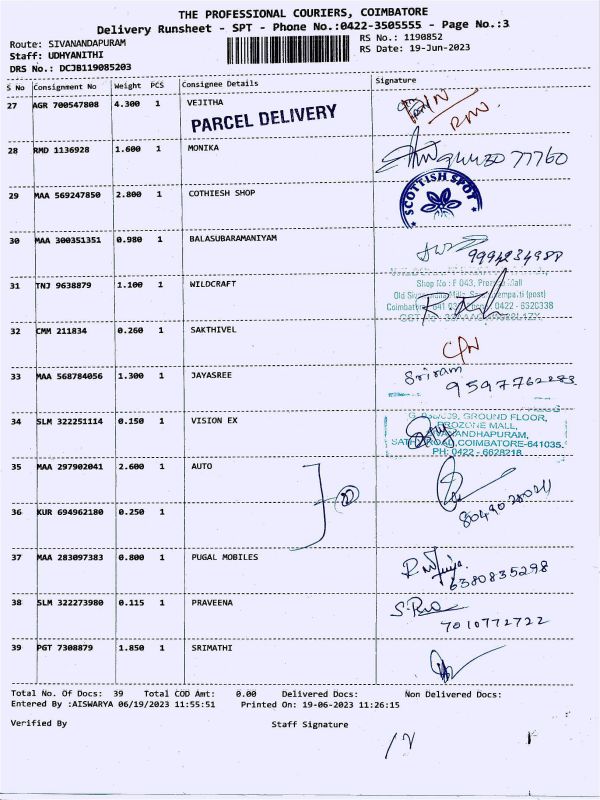 THE PROFESSIONAL COURIERS, COIMBATORE
Delivery Runsheet - SPT - Phone No.:0422-3505555 - Page No.:3
Route: SIVANANDAPURAM
RS No.: 1190852
Staff: UDHYANITHI
RS Date: 19-Jun-2023
DRS No.: DCJB119085203
S No Consignment No Weight PCS Consignee Details Signature
27 AGR 700547808 4.300 1 VEJITHA
PARCEL DELIVERY
28 RMD 1136928 1.600 1 MONIKA
29 MAA 569247850 2.800 1 COTHIESH SHOP
SCOTTISH SPOT
30 MAA 300351351 0.980 1 BALASUBARAMANIYAM
31 TNJ 9638879 1.100 1 WILDCRAFT
Shop No : F 043, Mall
32 CMM 211834 0.260 1 SAKTHIVEL
33 MAA 568784056 1.300 1 JAYASREE
Sriram
34 SLM 322251114 0.150 1 VISION EX
GROUND FLOOR,
PROZONE MALL,
SIVANANDHAPURAM,
ROAD, COIMBATORE-641035.
PH: 0422 - 6628218
35 MAA 297902041 2.600 1 AUTO
36 KUR 694962180 0.250 1
37 MAA 283097383 0.800 1 PUGAL MOBILES
6380835298
38 SLM 322273980 0.115 1 PRAVEENA
7010772722
39 PGT 7308879 1.850 1 SRIMATHI
Total No. Of Docs: 39 Total COD Amt: 0.00 Delivered Docs: Non Delivered Docs:
Entered By :AISWARYA 06/19/2023 11:55:51 Printed On: 19-06-2023 11:26:15
Verified By Staff Signature